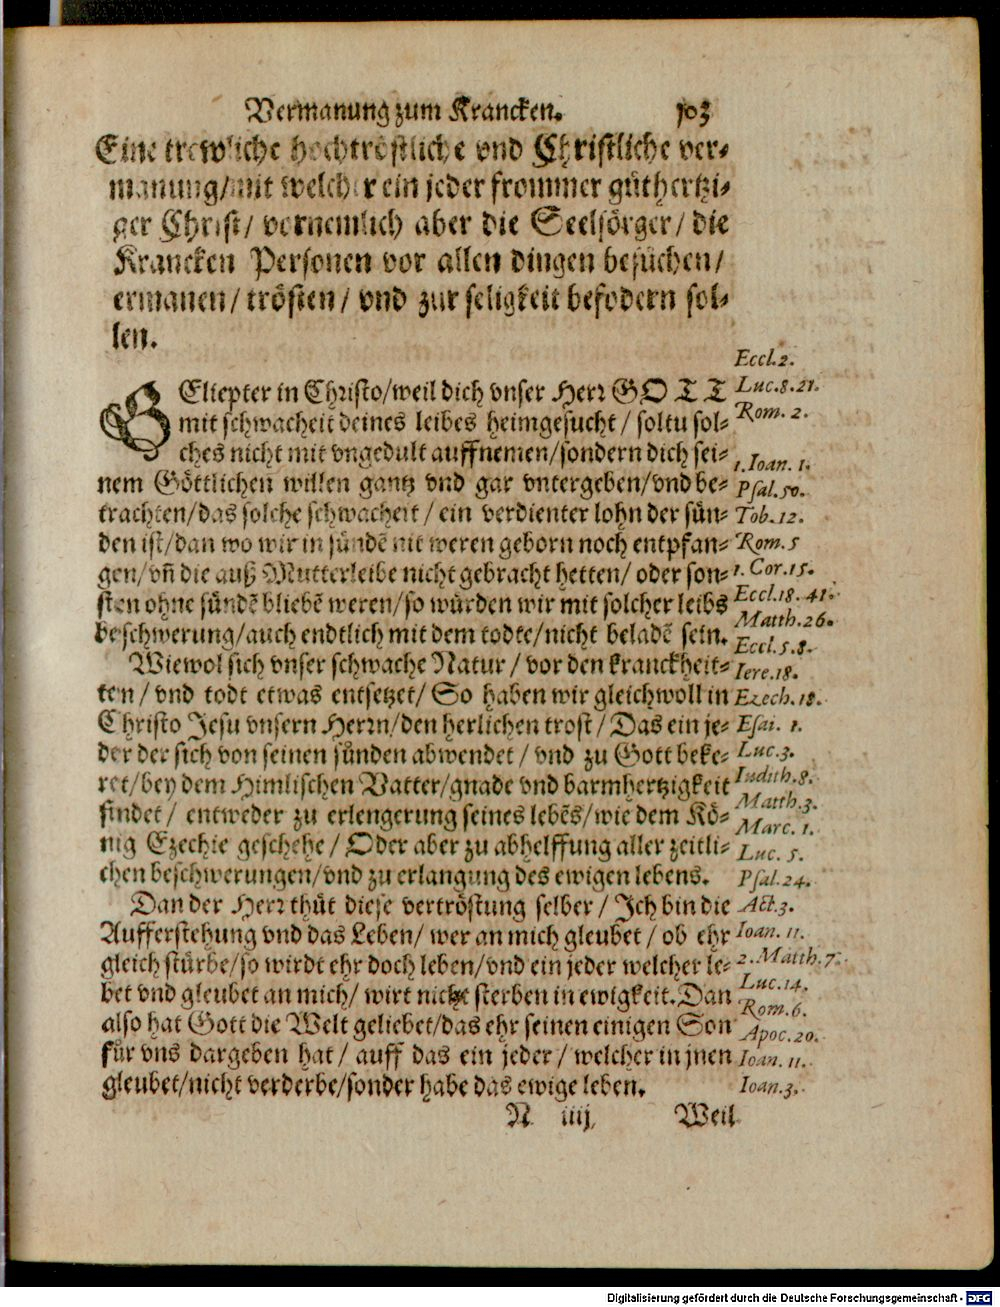 Vermanung zum Krancken. 103
Eine trewliche hochtröstliche vnd Christliche ver-
manung/ mit welcher ein jeder frommer gůthertzi-
ger Christ/ vornemlich aber die Seelsörger/ die
Krancken Personen vor allen dingen besůchen/
ermanen/ trösten/ vnd zur seligkeit befodern sol-
len.
GEliepter in Christo/ weil dich vnser Herr GOTT
mit schwacheit deines leibes heimgesucht/ soltu sol-
ches nicht mit vngedult auffnemen/ sondern dich sei-
nem Göttlichen willen gantz vnd gar vntergeben/ vnd be-
trachten/ das solche schwacheit/ ein verdienter lohn der sůn-
den ist/ dan wo wir in sůndē nit weren geborn noch entpfan-
gen/ vñ die auß Mutterleibe nicht gebracht hetten/ oder son-
sten ohne sůndē bliebē weren/ so wůrden wir mit solcher leibs
beschwerung/ auch endtlich mit dem todte/ nicht beladē sein.
Wiewol sich vnser schwache Natur/ vor den kranckheit-
ten/ vnd todt etwas entsetzet/ So haben wir gleichwoll in
Christo Jesu vnsern Herrn/ den herlichen trost/ Das ein je-
der der sich von seinen sůnden abwendet/ vnd zu Gott beke-
ret/ bey dem Himlischen Vatter/ gnade vnd barmhertzigkeit
findet/ entweder zu erlengerung seines lebēs/ wie dem Kö-
nig Ezechie geschehe/ Oder aber zu abhelffung aller zeitli-
chen beschwerungen/ vnd zu erlangung des ewigen lebens.
Dan der Herr thůt diese vertröstung selber/ Ich bin die
Aufferstehung vnd das Leben/ wer an mich gleubet/ ob ehr
gleich stůrbe/ so wirdt ehr doch leben/ vnd ein jeder welcher le-
bet vnd gleubet an mich/ wirt nicht sterben in ewigkeit. Dan
also hat Gott die Welt geliebet/ das ehr seinen einigen Son
fůr vns dargeben hat/ auff das ein jeder/ welcher in jnen
gleubet/ nicht verderbe/ sonder habe das ewige leben.
N iiij. Weil
Eccl.2.
Luc.8.21.
Rom. 2.
1.Ioan. 1.
Psal.50.
Tob.12.
Rom. 5
1. Cor.15.
Eccl.18. 41.
Matth.26.
Eccl.5.8.
Iere.18.
Ezech.18.
Esai. 1.
Luc.3.
Iudith.8.
Matth.3.
Marc. 1.
Luc. 5.
Psal.24.
Act.3.
Ioan. 11.
2.Matth.7.
Luc.14.
Rom.6.
Apoc.20.
Ioan. 11.
Ioan.3.
Digitalisierung gefördert durch die Deutsche Forschungsgemeinschaft - DFG